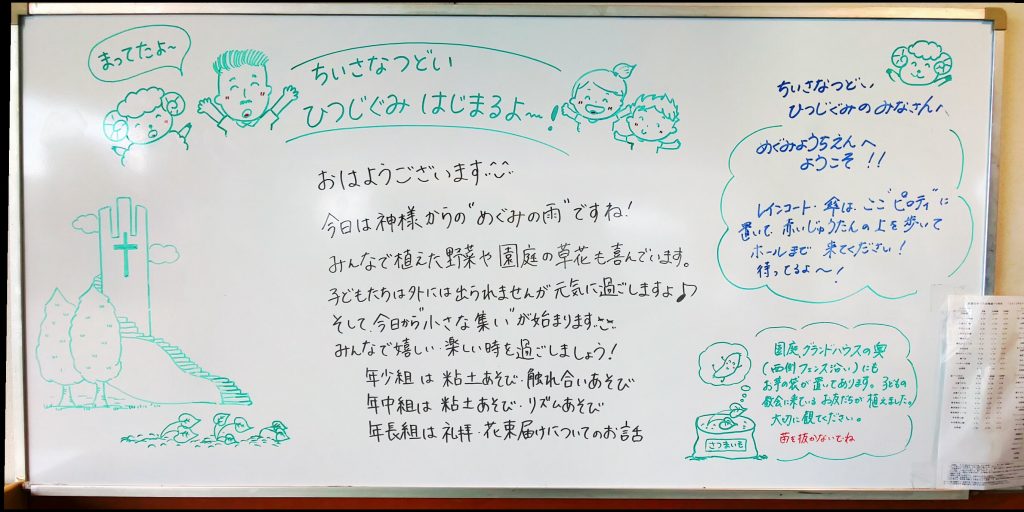 まってたよ〜
ちいさなつどい
ひつじぐみ はじまるよ〜!
おはようございます
今日は神様からの"めぐみの雨"ですね!
みんなで植えた野菜や園庭の草花も喜んでいます。
子どもたちは外には出られませんが元気に過ごしますよ♪
そして、今日から"小さな集い"が始まります
みんなで嬉しい・楽しい時を過ごしましょう!
年少組は 粘土あそび・触れ合いあそび
年中組は 粘土あそび・リズムあそび
年長組は 礼拝・花束届けについてのお話
ちいさなつどい
ひつじぐみのみなさん!
めぐみようちえんへ
ようこそ!!
レインコート・傘は、ここ"ピロティ"に
置いて、赤いじゅうたんの上を歩いて
ホールまで 来てください!
待ってるよ〜!
園庭グランドハウスの奥
(西側フェンス沿い)にも
お芋の袋が置いてあります。子どもの
教会に来ているお友だちが植えました。
大切に観てください。
苗を抜かないでね
さつまいも